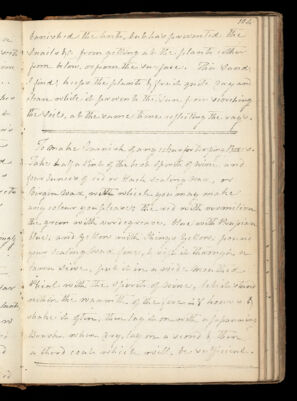 104
the roots, but has prevented the
Snails &c from getting at the plants either
from below, or from the surface. This Sand
I find, keeps the plants & fruit quite dry and
clean while it prevents the Sun from scorching
the roots, at the same time reflecting the rays.
To make Varnish of any colour for
Take half a Pint of the best Spirits of wine, and
four ounces of red or black Sealing wax, or
wax, with which you may make
any colour you please; the red with vermilion
the green with verdigrease, blue with Prussian
blue, and yellow with Kings Yellow, pound
your sealing wax fine, & sift it through a
Lawn Sieve, put it in a wide mouthed
with the Spirits of wine, let it stand
within the warmth of the fire 48 hours &
shake it often, then lay it on with a
brush, when dry, lay on a second & then
a third coat which will be sufficient.